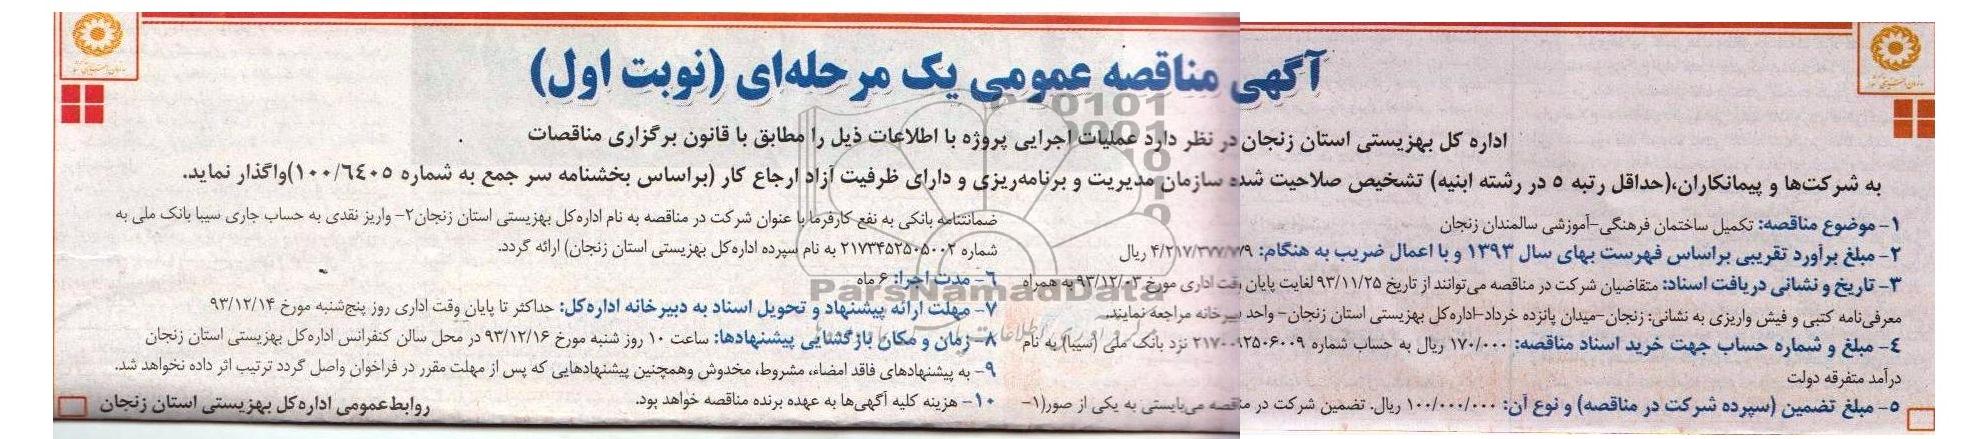 آگهی مناقصه عمومی یک مرحله‌ای (نوبت اول)
اداره کل بهزیستی استان زنجان در نظر دارد عملیات اجرایی پروژه با اطلاعات ذیل را مطابق با قانون برگزاری مناقصات
به شرکت‌ها و پیمانکاران،(حداقل رتبه ۵ در رشته ابنیه) تشخیص صلاحیت شده سازمان مدیریت و برنامه‌ریزی و دارای ظرفیت آزاد ارجاع کار (براساس بخشنامه سر جمع به شماره ۱۰۰/۶۴۰۵)واگذار نماید.
۱- موضوع مناقصه: تکمیل ساختمان فرهنگی-آموزشی سالمندان زنجان
۲- مبلغ برآورد تقریبی براساس فهرست بهای سال ۱۳۹۳ و با اعمال ضریب به هنگام: ۴/۲۱۷/۳۷۷/۷۷۹ ریال
۳- تاریخ و نشانی دریافت اسناد: متقاضیان شرکت در مناقصه می‌توانند از تاریخ ۹۳/۱۱/۲۵ لغایت پایان وقت اداری مورخ ۹۳/۱۲/۰۳ به همراه
معرفی‌نامه کتبی و فیش واریزی به نشانی: زنجان-میدان پانزده خرداد-اداره‌کل بهزیستی استان زنجان- واحد دبیرخانه مراجعه نمایند.
۴- مبلغ و شماره حساب جهت خرید اسناد مناقصه: ۱۷۰/۰۰۰ ریال به حساب شماره نزد بانک ملی (سیبا) به نام
درآمد متفرقه دولت
۵- مبلغ تضمین (سپرده شرکت در مناقصه) و نوع آن: ۱۰۰/۰۰۰/۰۰۰ ریال. تضمین شرکت در مناقصه می‌بایستی به یکی از صور(۱-
ضمانتنامه بانکی به نفع کارفرما با عنوان شرکت در مناقصه به نام اداره‌کل بهزیستی استان زنجان۲- واریز نقدی به حساب جاری سیبا بانک ملی به
شماره ۲۱۷۳۴۵۲۵۰۵۰۰۲ به نام سپرده اداره‌کل بهزیستی استان زنجان) ارائه گردد.
۶- مدت اجرا: ۶ ماه
۷- مهلت ارائه پیشنهاد و تحویل اسناد به دبیرخانه اداره‌کل: حداکثر تا پایان وقت اداری روز پنج‌شنبه مورخ ۹۳/۱۲/۱۴
۸- زمان و مکان بازگشایی پیشنهادها: ساعت ۱۰ روز شنبه مورخ ۹۳/۱۲/۱۶ در محل سالن کنفرانس اداره‌کل بهزیستی استان زنجان
۹- به پیشنهادهای فاقد امضاء، مشروط، مخدوش وهمچنین پیشنهادهایی که پس از مهلت مقرر در فراخوان واصل گردد ترتیب اثر داده نخواهد شد.
۱۰- هزینه کلیه آگهی‌ها به عهده برنده مناقصه خواهد بود.
روابط‌عمومی اداره‌کل بهزیستی استان زنجان
ParsNamadData